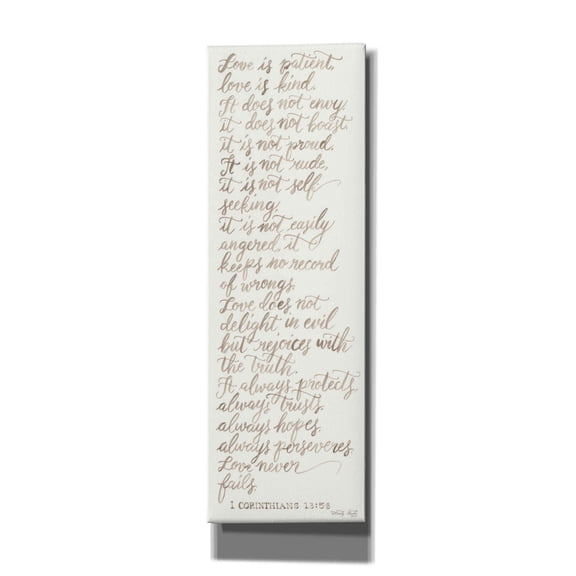 Love is patient,
love is kind.
It does not envy,
it does not boast,
it is not proud.
It is not rude,
it is not self-
seeking,
it is not easily
angered, it
keeps no record
of wrongs.
Love does not
delight in evil
but rejoices with
the truth.
It always protects,
always trusts,
always hopes,
always perseveres.
Love never
fails.
1 CORINTHIANS 13:58